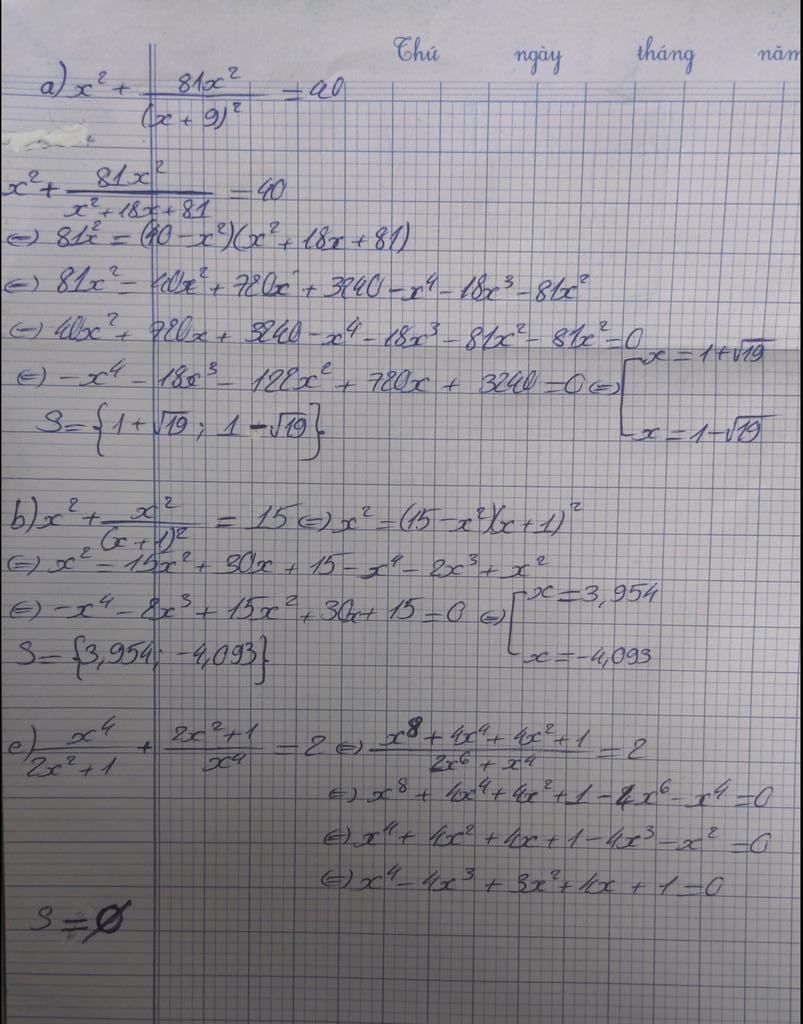 Thứ ngày tháng năm
a) x² + 81x² / (x + 9)² = 40
x² + 81x² / (x² + 18x + 81) = 40
⇔ 81x² = (40 - x²)(x² + 18x + 81)
⇔ 81x² = 40x² + 720x + 3240 - x⁴ - 18x³ - 81x²
⇔ 40x² + 720x + 3240 - x⁴ - 18x³ - 81x² - 81x² = 0
⇔ -x⁴ - 18x³ - 122x² + 720x + 3240 = 0 ⇔ [ x = 1 + √19
x = 1 - √19
S = {1 + √19 ; 1 - √19}
b) x² + x² / (x + 1)² = 15 ⇔ x² = (15 - x²)(x + 1)²
⇔ x² = 15x² + 30x + 15 - x⁴ - 2x³ + x²
⇔ -x⁴ - 2x³ + 15x² + 30x + 15 = 0 ⇔ [ x = 3,954
x = -4,093
S = {3,954; -4,093}
c) x⁴ / (2x² + 1) + (2x² + 1) / x⁴ = 2 ⇔ (x⁸ + 4x⁴ + 4x² + 1) / (2x⁶ + x⁴) = 2
⇔ x⁸ + 4x⁴ + 4x² + 1 - 4x⁶ - x⁴ = 0
⇔ x⁴ + 4x² + 4x + 1 - 4x³ - x² = 0
⇔ x⁴ - 4x³ + 3x² + 4x + 1 = 0
S = ∅